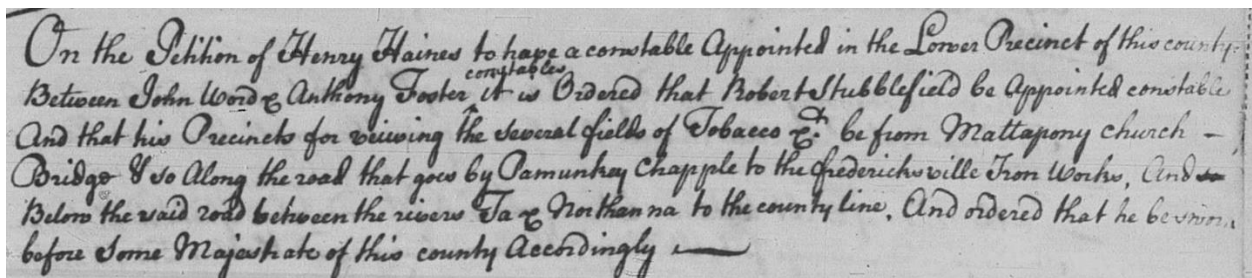 On the Petition of Henry Haines to have a constable Appointed in the Lower Precinct of this county
Between John Word & Anthony Foster constables it is Ordered that Robert Stubblefield be Appointed constable
And that his Precincts for veiwing the several fields of Tobacco &c. be from Mattapony church –
Bridge & so Along the road that goes by Pamunkey Chapple to the fredericksville Iron Works, And
Below the said road between the rivers Ta & Northanna to the county line, And ordered that he be sworn
before Some Majestrate of this county Accordingly —